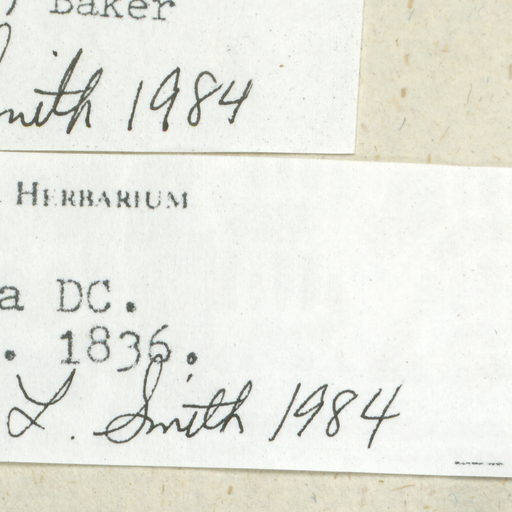 ) Baker
Smith 1984
HERBARIUM
a DC.
. 1836.
L. Smith 1984